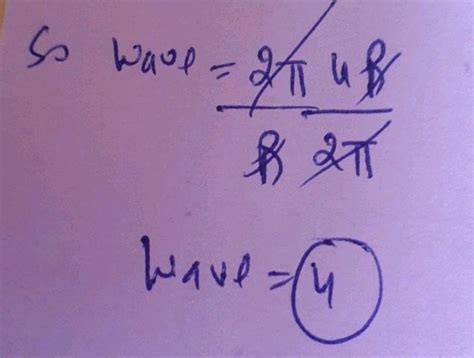 So wave = 2π 4R
R 2π
wave = 4